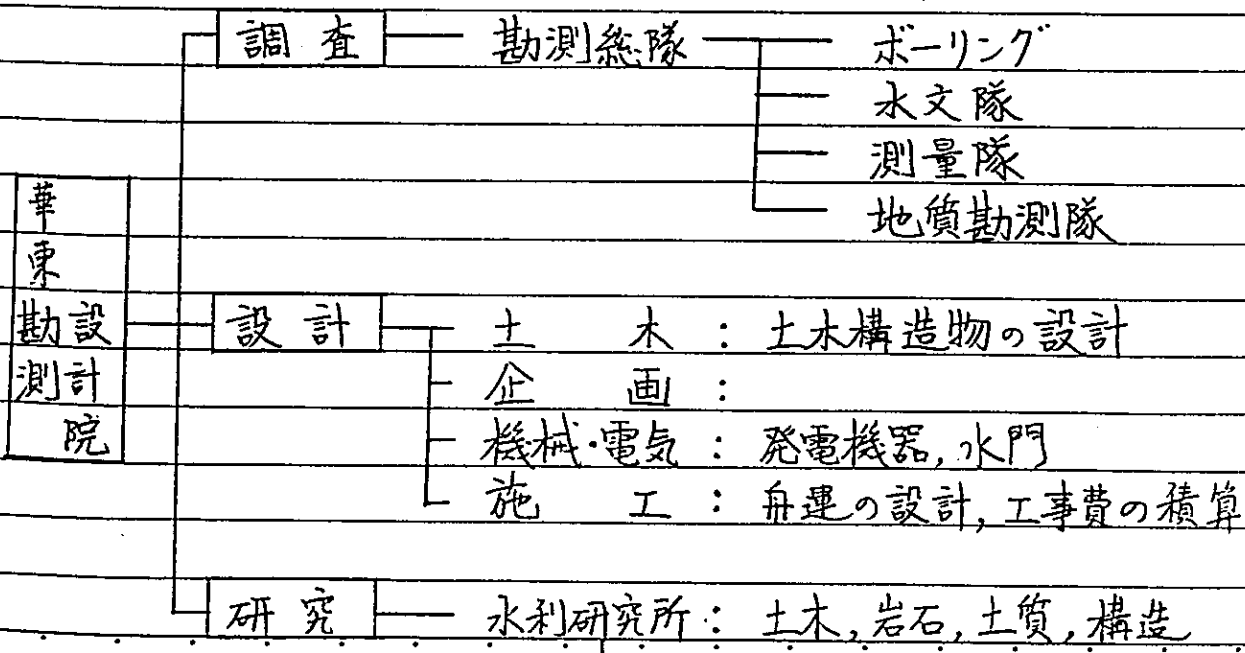 調査 勘測総隊 ボーリング
水文隊
測量隊
地質勘測隊
華東勘測設計院
設計 土木:土木構造物の設計
企画:
機械・電気:発電機器,水門
施工:舟運の設計,工事費の積算
研究 水利研究所:土木,岩石,土質,構造